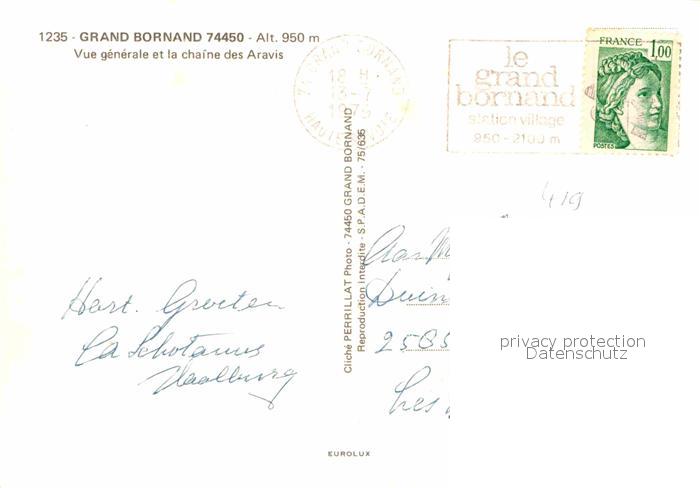 1235 - GRAND BORNAND 74450 - Alt. 950 m
Vue générale et la chaîne des Aravis
18 H
13-7
HAUTE
le
grand
bornand
station village
950-2100 m
FRANCE
1,00
POSTES
419
Cliché PERRILLAT Photo - 74450 GRAND BORNAND
Reproduction Interdite - S.P.A.D.E.M. - 75/635
Hart. Groeten
Schotanus
Aan
Duin
2585
privacy protection
Datenschutz
EUROLUX